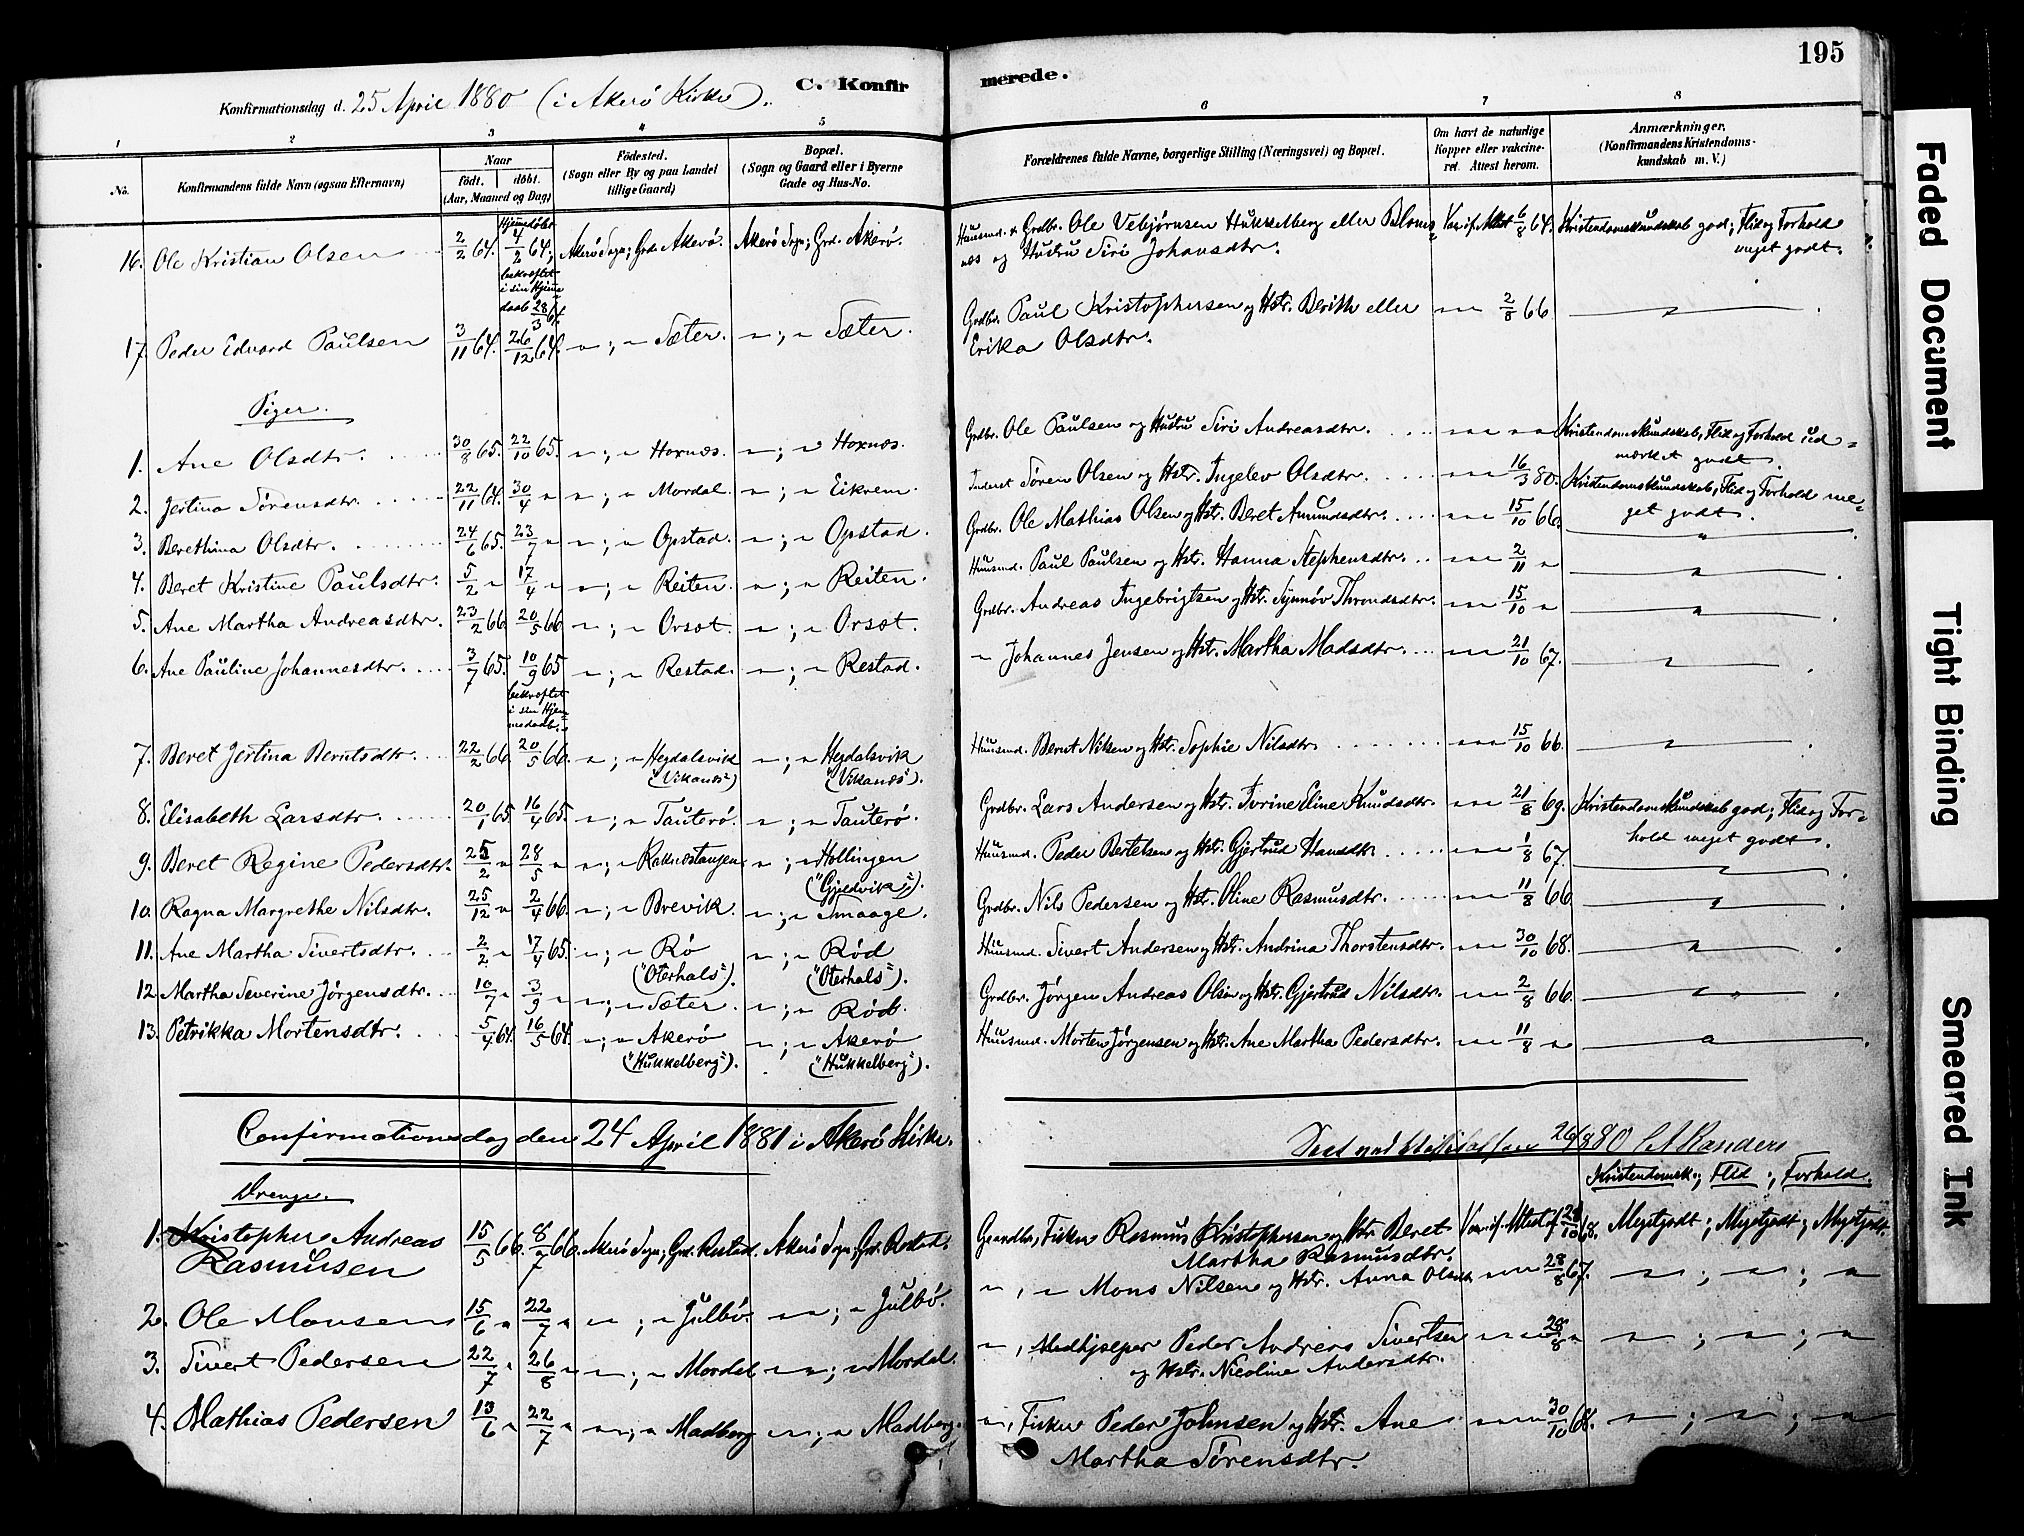 195
C. Konfirmerede.
Konfirmationsdag d. 25 April 1880 (i Akerö Kirke).
1 2 3 4 5 6 7 8
No. Konfirmandens fulde Navn (ogsaa Efternavn) Naar födt. döbt. (Aar, Maaned og Dag) Födested. (Sogn eller By og paa Landet tillige Gaard) Bopæl. (Sogn og Gaard eller i Byerne Gade og Hus-No. Forældrenes fulde Navne, borgerlige Stilling (Næringsvei) og Bopæl. Om havt de naturlige Kopper eller vakcineret. Attest herom. Anmærkninger. (Konfirmandens Kristendomskundskab m. V.)
16. Ole Kristian Olsen 2/2 64. Hjemdöbt 4/2 64, bekræftet i sin Hjemedaab 28/3 64. Akerö Sogn; Grd. Akerö. Akerö Sogn; Grd. Akerö. Huusmd. & Grdbr. Ole Vebjørnsen Hukkelberg eller Blomsnæs og Hustru Siri Johansdtr. Vac. if. Attest 6/8 64. Kristendomskundskab god; Flid og Forhold meget godt.
17. Peder Edvard Paulsen 3/11 64. 26/12 64. " ; " Sæter. " ; " Sæter. Grdbr. Paul Kristophersen og Hstr. Berith eller Erika Olsdtr. " " 2/8 66. "
Piger.
1. Ane Olsdtr. 30/8 65. 22/10 65. " ; " Hoxnæs. " ; " Hoxnæs. Grdbr. Ole Paulsen og Hustru Siri Andreasdtr. " " " " Kristendomskundskab, Flid og Forhold udmærket godt.
2. Jertina Sørensdtr. 22/11 64. 30/4 " " ; " Mordal. " ; " Eikrem. Inderst Søren Olsen og Hstr. Ingelev Olsdtr. " " 16/3 80. Kristendomskundskab, Flid og Forhold meget godt.
3. Berethina Olsdtr. 24/6 65. 23/7 " " ; " Opstad. " ; " Opstad. Grdbr. Ole Mathias Olsen og Hstr. Beret Amundsdtr. " " 15/10 66. "
4. Beret Kristine Paulsdtr. 5/2 " 17/4 " " ; " Reiten. " ; " Reiten. Huusmd. Paul Paulsen og Hstr. Hanna Stephensdtr. " " 2/11 " "
5. Ane Martha Andreasdtr. 23/2 66. 20/5 66. " ; " Orsæt. " ; " Orsæt. Grdbr. Andreas Ingebrigtsen og Hstr. Synnøv Throndsdtr. " " 15/10 " "
6. Ane Pauline Johannesdtr. 3/7 65. 10/9 65 bekræftet i sin Hjemmedaab. " ; " Restad. " ; " Restad. " Johannes Jensen og Hstr. Martha Madsdtr. " " 21/10 67. "
7. Beret Jertina Berntsdtr. 22/2 66. 20/5 66. " ; " Hegdalsvik ("Vikanæs") " ; " Hegdalsvik ("Vikanæs"). Huusmd. Bernt Nilsen og Hstr. Sophie Nilsdtr. " " 15/10 66. "
8. Elisabeth Larsdtr. 20/1 65. 16/4 65. " ; " Tauterö. " ; " Tauterö. Grdbr. Lars Andersen og Hstr. Iverine Eline Knudsdtr. " " 21/8 69. Kristendomskundskab god; Flid og Forhold meget godt.
9. Beret Regine Pedersdtr. 25/2 " 28/5 " " ; " Raknestangen " ; " Hollingen ("Gjeldvik"). Huusmd. Peder Bertelsen og Hstr. Gjertrud Hansdtr. " " 1/8 67. "
10. Ragna Margrethe Nilsdtr. 25/12 " 2/4 66. " ; " Brevik. " ; " Smaage. Grdbr. Nils Pedersen og Hstr. Oline Rasmusdtr. " " 11/8 66. "
11. Ane Martha Sivertsdtr. 2/2 " 17/4 65. " ; " Rö ("Oterhals"). " ; " Röd ("Oterhals"). Huusmd. Sivert Andersen og Hstr. Andrina Thorstensdtr. " " 30/10 68. "
12. Martha Severine Jørgensdtr. 10/7 " 3/9 " " ; " Sæter. " ; " Röd. Grdbr. Jørgen Andreas Olsen og Hstr. Gjertrud Nilsdtr. " " 2/8 66. "
13. Petrikka Mortensdtr. 5/4 64. 16/5 64. " ; " Akerö ("Hukkelberg"). " ; " Akerö ("Hukkelberg"). Huusmd. Morten Jørgensen og Hstr. Ane Martha Pedersdtr. " " 11/8 " "
Confirmationsdag den 24 April 1881 i Akerö Kirke.
Seet ved 26/8 80 Randers
Drenge. Kristendomsk.; Flid; Forhold.
1. Kristopher Andreas Rasmussen 15/5 66. 8/7 66. Akerö Sogn; Grd. Restad. Akerö Sogn; Grd. Restad. Gaardbr., Fisker Rasmus Kristophersen og Hstr. Beret Martha Rasmusdtr. Vac. if. Attest af 24/10 68. Megetgodt; Megetgodt; Megetgodt.
2. Ole Monsen 15/6 " 22/7 " " ; " Julbö. " ; " Julbö. " , " Mons Nilsen og Hstr. Anna Olsdtr. " " 28/8 67. " ; " ; "
3. Sivert Pedersen 22/7 " 26/8 " " ; " Mordal " ; " Mordal. " , Medhjælper Peder Andreas Sivertsen og Hstr. Nicoline Andersdtr. " " 28/8 " " ; " ; "
4. Mathias Pedersen 13/6 " 22/7 " " ; " Madberg " ; " Madberg. " , Fisker Peder Johnsen og Hstr. Ane Martha Sørensdtr. " " 30/10 68. " ; " ; "
Faded Document
Tight Binding
Smeared Ink